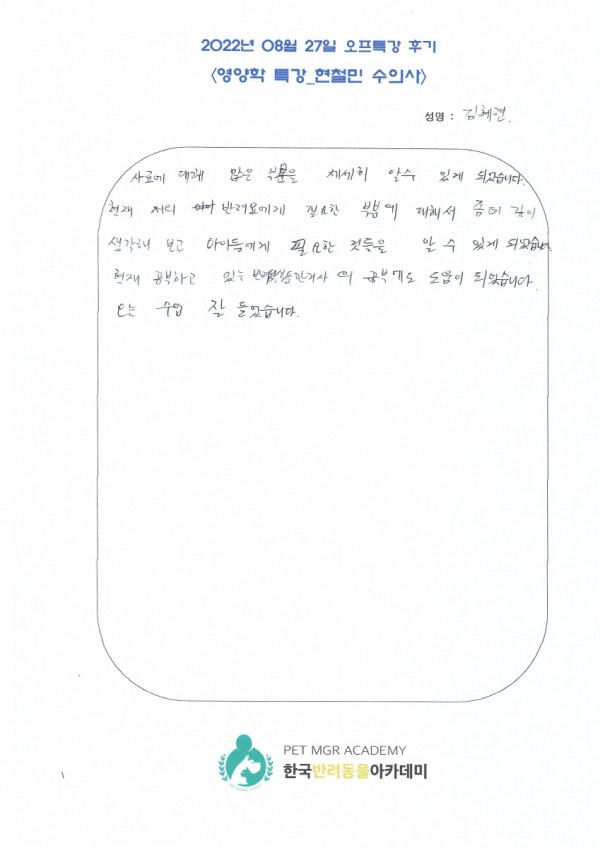 2022년 08월 27일 오프특강 후기
<영양학 특강_현철민 수의사>
성명 : 김혜련.
사료에 대해 많은 부분을 자세히 알수 있게 되었습니다.
현재 저의 반려묘에게 필요한 부분에 대해서 좀더 깊이
생각해 보고 아이들에게 필요한 것들을 알 수 있게 되었습니다.
현재 공부하고 있는 관리사 의 공부에도 도움이 되었습니다.
오늘 수업 잘 들었습니다.
PET MGR ACADEMY
한국반려동물아카데미